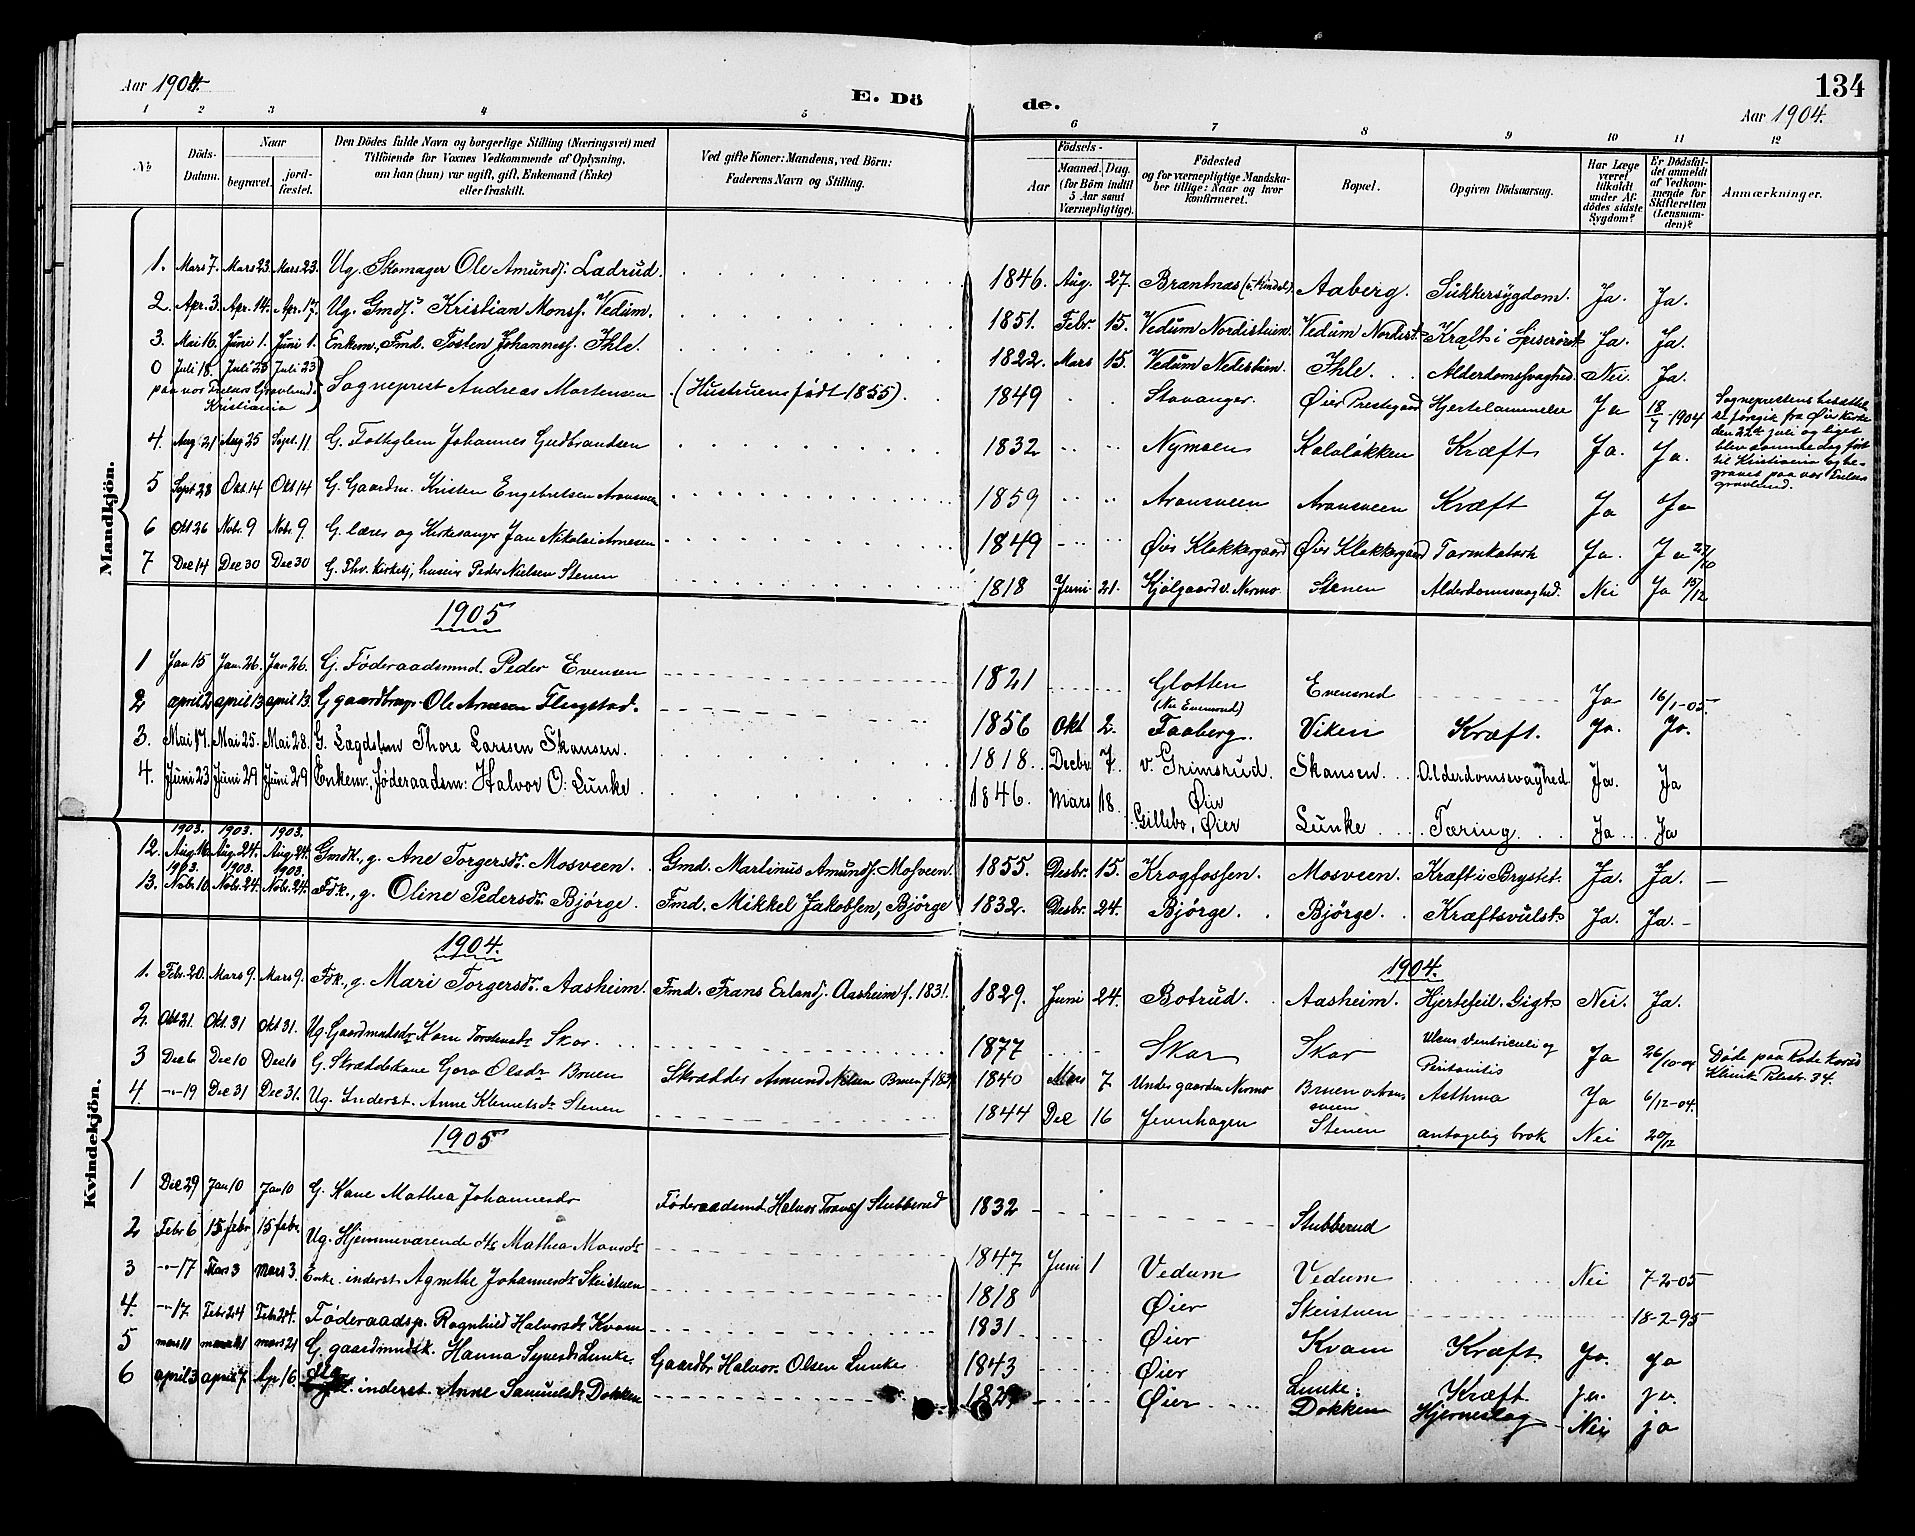 Aar 1904.
E. Dö de.
134
Aar 1904.
1 2 3 4 5 6 7 8 9 10 11 12
No
Döds-Datum.
Naar
begravet.
jordfæstet.
Den Dödes fulde Navn og borgerlige Stilling (Næringsvei) med
Tilföiende for Voxnes Vedkommende af Oplysning,
om han (hun) var ugift, gift, Enkemand (Enke)
eller fraskilt.
Ved gifte Koner: Mandens, ved Börn:
Faderens Navn og Stilling.
Födsels-
Aar
Maaned. Dag.
(for Börn indtil
5 Aar samt
Værnepligtige).
Födested
og for værnepligtige Mandskaber tillige: Naar og hvor
konfirmeret.
Bopæl.
Opgiven Dödsaarsag.
Har Læge
været
tilkaldt
under Afdödes sidste
Sygdom?
Er Dödsfaldet anmeldt
af Vedkommende for
Skifteretten
(Lensmanden)?
Anmærkninger.
Mandkjön.
1. Mars 7. Mars 23. Mars 23. Ug. Skomager Ole Amundj: Ladrud. 1846. Aug. 27. Brantnas Aaberg. Sukkersygdom. Ja. Ja.
2. Apr. 3. Apr. 14. Apr. 17. Ug. Gmdj. Kristian Monsf. Vedum. 1851. Febr. 15. Vedum Nordistuen. Vedum Nordist. Kræft i Spiserøret Ja. Ja.
3. Mai 16. Juni 1. Juni 1. Enkem., Fmd. Tosten Johannesf. Ihle. 1822. Mars 15. Vedum Nedistuen. Ihle. Alderdomssvaghed. Nei. Ja.
0 Juli 18. Juli 23 Juli 23 Sogneprest Andreas Mortensen (Hustruens født 1855) 1849 Stavanger. Øier Prestegaard Hjertelammelse Ja 18/7-1904
paa vor Frelsers Gravlund
Kristiania
Sogneprestens bisættelse foregik fra Øier Kirke
den 22de juli og liget
blev samme dag ført
til Kristiania og begravet paa vor Frelsers
gravlund.
4 Aug 21 Aug 25 Sept. 11 G. Fattiglem Johannes Gudbrandsen 1832 Nymoen Kalaløkken Kræft Ja. Ja.
5 Sept 28 Okt 14 Okt 14 G. Gaardm. Kristen Engebretsen Aronsveen 1859 Aronsveen Aronsveen Kræft Ja Ja
6 Okt 26 Nobr. 9 Nobr. 9 G. lærer og Kirkesanger Jan Nikolai Arnesen 1849 Øier Klokkergaard Øier Klokkergaard Tarmkatarh Ja. Ja 27/10
7 Dec 14 Dec 30 Dec 30 G. Fhv. Kirketj, huseier Peder Nielsen Stenen 1818 Juni 21. Kjølgaard v. Nermo Stenen Alderdomssvaghed. Nei Ja 15/12
1905
1 Jan 15 Jan. 26. Jan 26. G. Føderaadsmnd. Peder Evensen 1821 Glotten (Nu Evensrud) Evensrud Ja 16/1-05.
2 april 2 april 13 april 13. G gaardbrugr Ole Arnesen Flugstad. 1856 Okt 2. Faaberg. Viken Kræft. Ja. Ja.
3. Mai 17. Mai 25. Mai 28. G. Lægdslem Thore Larssen Skansen. 1818. Decbr. 7. v. Grimsrud. Øier Skansen. Alderdomsvaghed Ja. Ja
4. Juni 23 Juni 29 Juni 29 Enkem., føderaadsm: Halvor O: Lunke. 1846. Mars 18. Gillebo, Øier Lunke Tæring. Ja Ja
Kvindekjön.
12. 1903. Aug 16. 1903. Aug. 24. 1903. Aug 24. Gmdk., g. Ane Torgersdt. Mosveen. Gmd. Martinus Amundf. Mosveen. 1855. Desbr. 15. Krogfossen. Mosveen. Kræft i Brystet. Ja. Ja. —
13. 1903. Nobr. 10. 1903. Nobr. 24. 1903. Nobr. 24. Fdk., g. Oline Pedersdt. Bjørge. Fmd. Mikkel Jakobsen, Bjørge 1832. Desbr. 24. Bjørge. Bjørge. Kræftsvulst. Ja. Ja. —
1904. 1904.
1. Febr. 20. Mars 9. Mars 9. Fdk., g. Mari Torgersdt. Aasheim. Fmd. Frans Erlandj. Aasheim f. 1831. 1829. Juni 24. Botrud. Aasheim. Hjertefeil. Gigt. Nei. Ja.
2. Okt 21. Okt. 31 Okt 31. Ug. Gaardmandsdr Karn Torstensdr Skar. 1877 Skar Skar Ulcus Ventriculi og Peritonitis Ja 26/10-04 Døde paa Røde korses
Klinik Pilestr. 34.
3 Dec 6 Dec 10 Dec 10 G. Skrædderkone Goro Olsdr Bruen Skrædder Amund Nilsen Bruen f. 1840 Mars 7 Under gaarden Nermo Bruen v Aronsveen Asthma Ja 6/12-04.
4 -"- 19 Dec 31 Dec 31. Ug. Inderst. Anne Klemetsdr Stenen 1844 Dec 16 Jevnhagen Stenen antagelig brok Nei 20/12
1905
1 Dec 29 Jan 10 Jan 10 G. Kone Mathea Johannesdr Føderaadsmd Halvor Stubberud 1832 Stubberud
2 Febr 6 15 febr 15 febr. Ug. Hjemmeværende dtr Mathea Monsdr 1847 Juni 1 Vedum Vedum Nei 7-2-05
3 -"- 17 Mars 3 Mars 3. Enke. inderst Agnethe Johannesdr Skeistuen 1818 Øier Skeistuen 18-2-95
4. -"- 17. Febr 24 Febr 24. Føderaadsp. Ragnhild Halvorsdr Kvam 1831 Øier Kvam Kræft. Ja. Ja
5 mars 11 mars 21 mars 21 G. gaardmndsk. Hanna Synesdr Lunke. Gaardbr Halvor Olsen Lunke 1843 Øier Lunke. Kræft ja. ja.
6 april 3 april 7. Ap 16. inderst. Anne Samuelsdr Dokken Øier Dokken Hjerneslag Nei ja